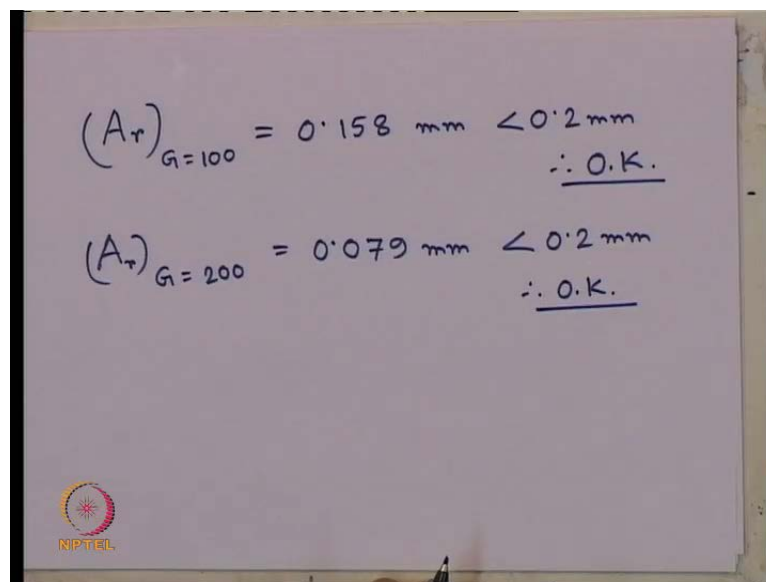 (Ar)G=100 = 0.158 mm < 0.2 mm
∴ O.K.
(Ar)G=200 = 0.079 mm < 0.2 mm
∴ O.K.
NPTEL